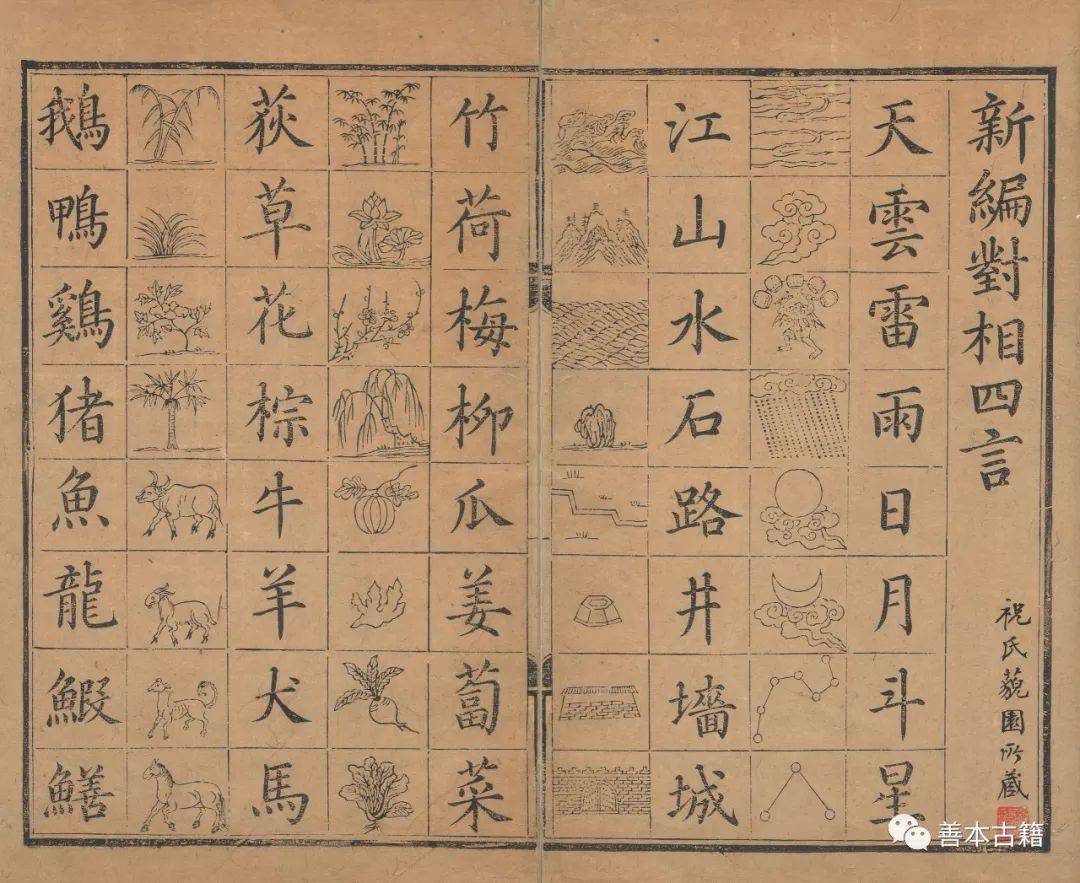 新編對相四言
祝氏藐園所藏
天雲雷雨日月斗星
江山水石路井墻城
竹荷梅柳瓜姜蔔菜
荻草花棕牛羊犬馬
鵝鴨鷄猪魚龍鰕鱔
善本古籍